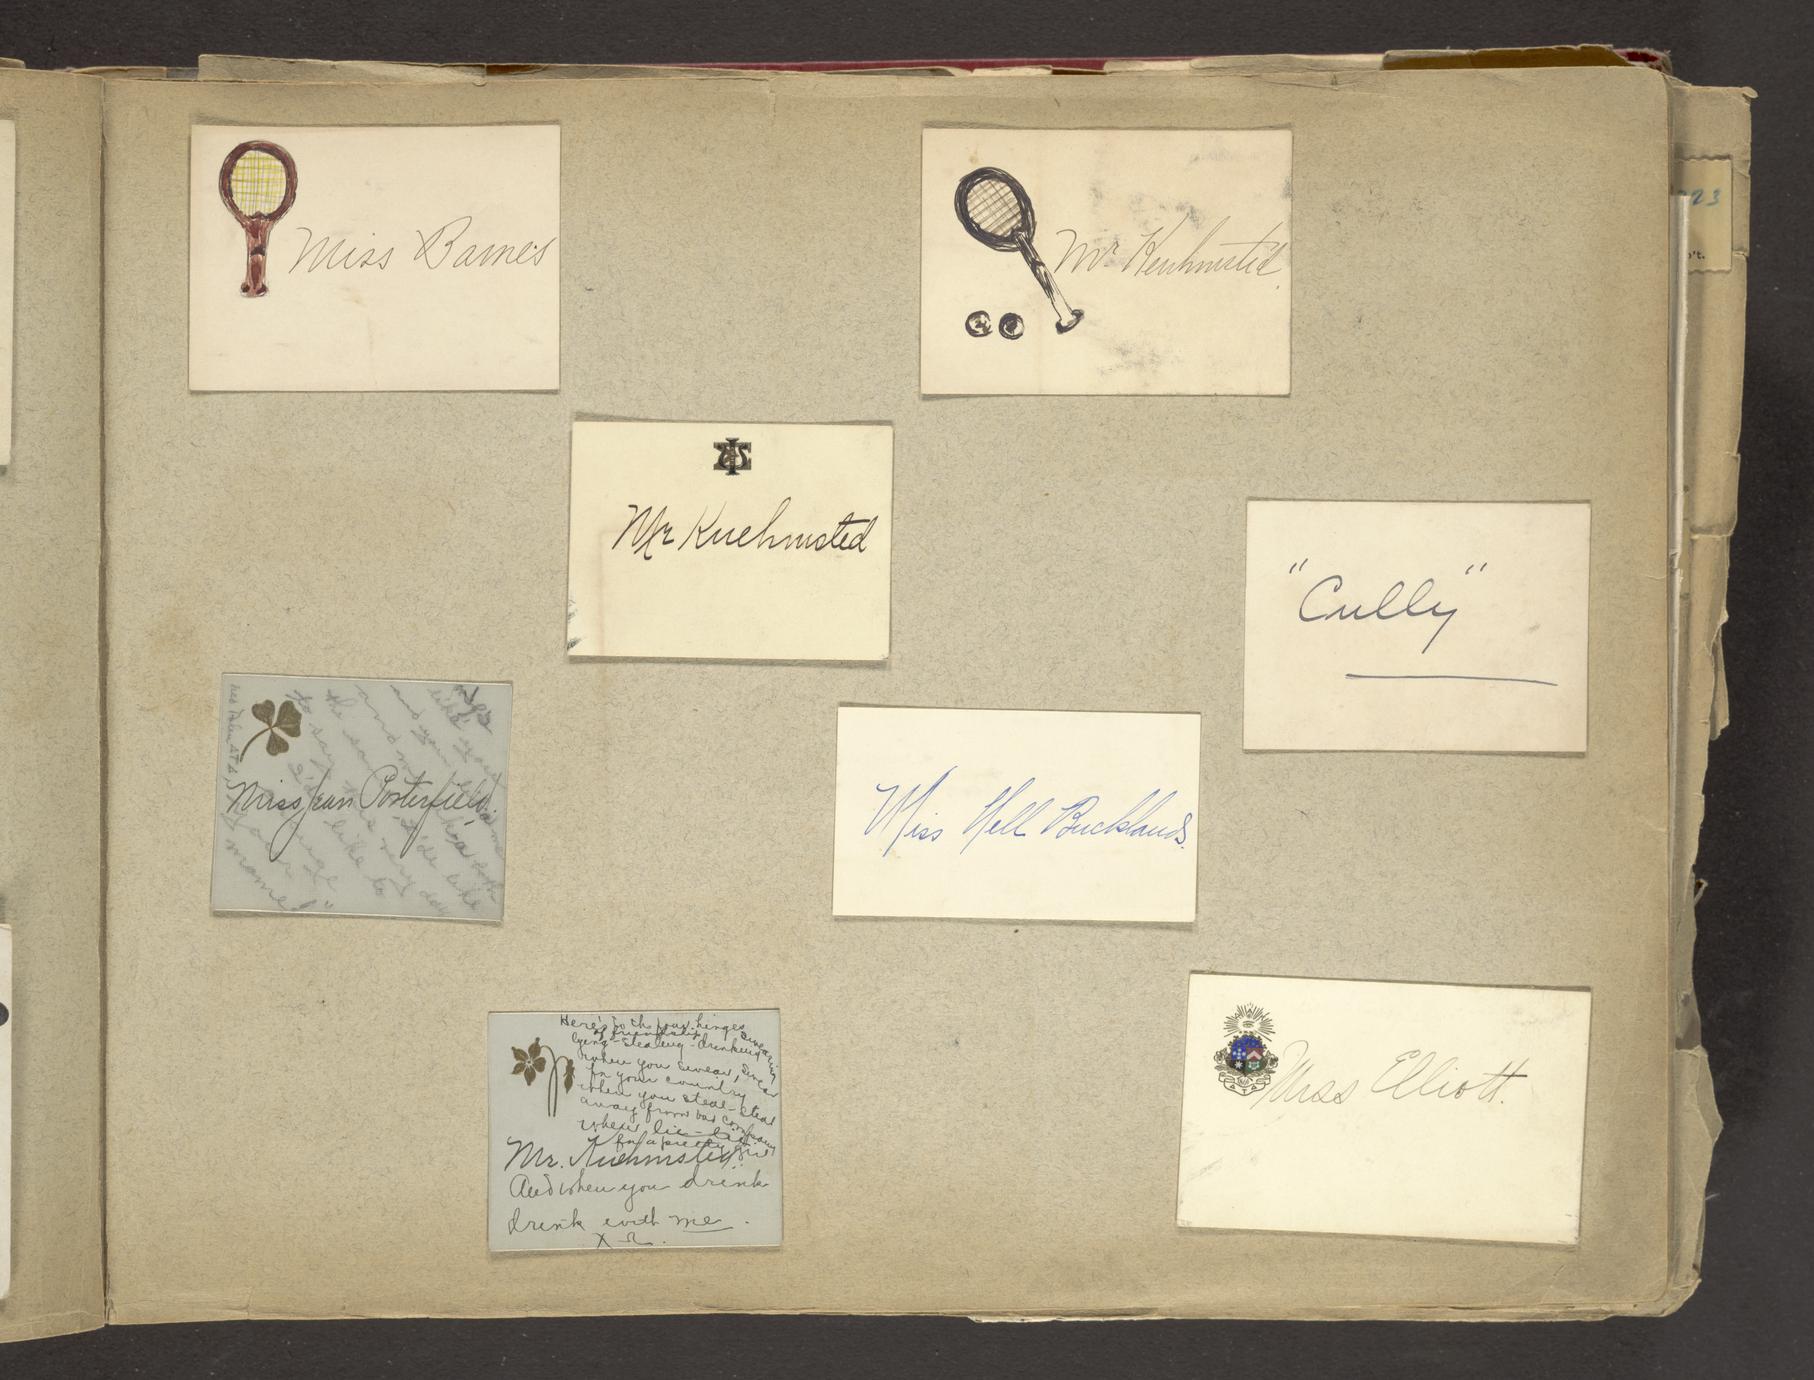 Miss Barnes
Mr Keuhmsted.
Mr Kuehmsted
"Cully"
Miss Jean Porterfield.
to say
I'd like to
name!"
Miss Nell Bucklands.
Here's to th four hinges
of friendship. Swearing
lying - stealing - drinking
when you swear, swear
for your country
when you steal - steal
away from bad company
when lie - lie
for a pretty girl
Mr. Kuehmsted
And when you drink
drink with me.
X Ω.
Miss Elliott.
ΔTΔ
23